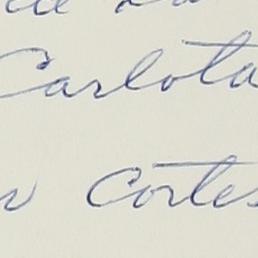 Carlota
Cortes